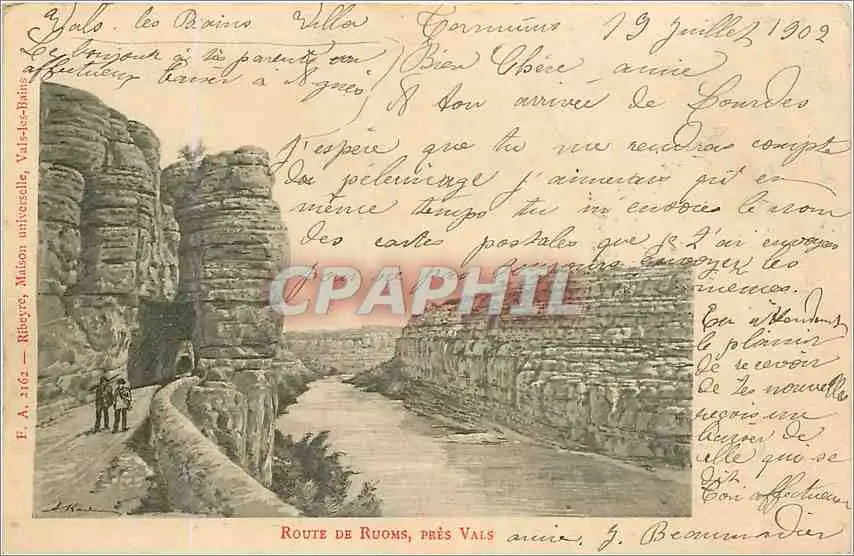 Vals les Bains Villa Termínùs 19 Juillet 1902
Le bonjour à tes parents un
affectueux baiser à Agnés
Bien Chère amie
A ton arrivée de Lourdes
J'espère que tu me rendras compte
du pélerinage j'aimerais qu'en
même temps tu m'envoies le nom
des cartes postales que je t'ai envoyées
pour ne pas toujours envoyez les
mêmes.
En attendant
le plaisir
de recevoir
de tes nouvelles
reçois un
baiser de
celle que se
dit
Ton affectueuse
amie. J. Beaumadier
CPAPHIL
E. A. 2162 — Ribeyre, Maison universelle, Vals-les-Bains
ROUTE DE RUOMS, PRÈS VALS